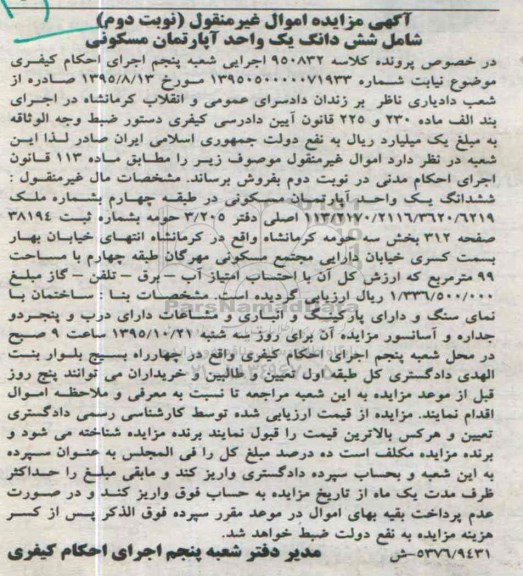 آگهی مزایده اموال غیرمنقول (نوبت دوم)
شامل شش دانگ یک واحد آپارتمان مسکونی
در خصوص پرونده کلاسه ۹۵۰۸۳۲ اجرایی شعبه پنجم اجرای احکام کیفری
موضوع نیابت شماره ۱۳۹۵۰۵۰۰۰۰۰۷۱۹۳۳ مورخ ۱۳۹۵/۸/۱۳ صادره از
شعب دادیاری ناظر بر زندان دادسرای عمومی و انقلاب کرمانشاه در اجرای
بند الف ماده ۲۳۰ و ۲۲۵ قانون آیین دادرسی کیفری دستور ضبط وجه الوثاقه
به مبلغ یک میلیارد ریال به نفع دولت جمهوری اسلامی ایران صادر لذا این
شعبه در نظر دارد اموال غیرمنقول موصوف زیر را مطابق ماده ۱۱۳ قانون
اجرای احکام مدنی در نوبت دوم بفروش برساند. مشخصات مال غیرمنقول :
ششدانگ یک واحد آپارتمان مسکونی در طبقه چهارم بشماره ملک
۱۱۳/۲۱۷۰/۲۱۱۶/۳۶۲۰/۶۲۱۹ اصلی دفتر ۳/۲۰۵ حومه بشماره ثبت ۳۸۱۹۴
صفحه ۳۱۲ بخش سه حومه کرمانشاه واقع در کرمانشاه انتهای خیابان بهار
بسمت کسری خیابان دارایی مجتمع مسکونی مهرگان طبقه چهارم با مساحت
۹۹ مترمربع که ارزش کل آن با احتساب امتیاز آب – برق – تلفن – گاز مبلغ
۱/۳۳۶/۵۰۰/۰۰۰ ریال ارزیابی گردیده است. مشخصات بنا : ساختمان با
نمای سنگ و دارای پارکینگ و انباری و ساختمان دارای درب و پنجره دو
جداره و آسانسور مزایده آن برای روز سه شنبه ۱۳۹۵/۱۰/۲۱ ساعت ۹ صبح
در محل شعبه پنجم اجرای احکام کیفری واقع در چهارراه بسیج بلوار بنت
الهدی دادگستری کل طبقه اول تعیین و طالبین و خریداران می توانند پنج روز
قبل از موعد مزایده به این شعبه مراجعه تا نسبت به معرفی و ملاحظه اموال
اقدام نمایند. مزایده از قیمت ارزیابی شده توسط کارشناسی رسمی دادگستری
تعیین و هرکس بالاترین قیمت را قبول نمایند برنده مزایده شناخته می شود و
برنده مزایده مکلف است ده درصد مبلغ کل را فی المجلس به عنوان سپرده
به این شعبه و بحساب سپرده دادگستری واریز کند و مابقی مبلغ را حداکثر
ظرف مدت یک ماه از تاریخ مزایده به حساب فوق واریز کند و در صورت
عدم پرداخت بقیه بهای اموال در موعد مقرر سپرده فوق الذکر پس از کسر
هزینه مزایده به نفع دولت ضبط خواهد شد.
۵۳۷۶/۹۴۳۱–ش مدیر دفتر شعبه پنجم اجرای احکام کیفری